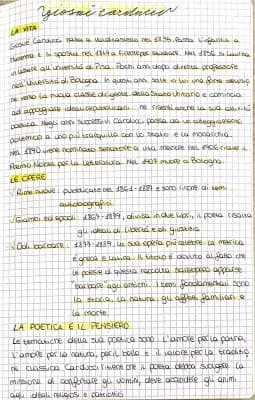 giosuè carducci
LA VITA
Giosuè Carducci nasce a Valdicastello nel 1835. Passa l'infanzia in
Maremma e si sposta nel 1849 a Firenze per studiare. Nel 1856 si laurea
in lettere all'Università di Pisa. Pochi anni dopo diventa professore
nell'Università di Bologna. In questi anni sale in lui una forte
ne verso la nuova classe dirigente dello Stato Unitario e comincia
ad appoggiare ideali repubblicani ne risente anche la sua attività
poetica. Negli anni successivi Carducci, passa da un atteggiamento
polemico a uno più tranquillo con lo Stato e la monarchia.
Nel 1890 viene nominato senatore a vita, mentre nel 1906 riceve il
Premio Nobel per la Letteratura. Nel 1907 muore a Bologna.
LE OPERE
Rime nuove: pubblicate nel 1861-1887 e sono ricche di temi
autobiografici
Giambi ed epodi: 1867-1879, divisa in due libri, il poeta risalta
gli ideali di libertà e di giustizia
Odi barbare: 1877-1889, la sua opera più celebre. La metrica
è greca e latina. Il titolo è dovuto al fatto che
le poesie di questa raccolta sarebbero apparse
"barbare" agli antichi. I temi fondamentali sono
la storia, la natura, gli affetti familiari e
la morte.
LA POETICA E IL PENSIERO
Le tematiche della sua poetica sono: l'amore per la patria,
l'amore per la natura, per il bello e il valore per la tradizio
ne classica. Carducci ritiene che il poeta debba svolgere la
missione di confortare gli uomini, deve accendere gli animi
agli ideali religiosi e patriottici